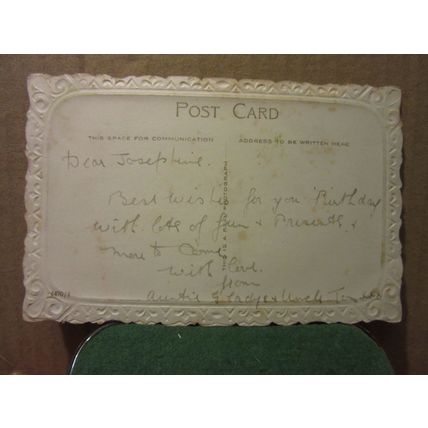 POST CARD
THIS SPACE FOR COMMUNICATION
ADDRESS TO BE WRITTEN HERE
Dear Josephine.
Best wishes for you Birthday
with lots of fun & Presents &
more to come
with love.
from
Auntie Gladys & Uncle
THIS IS A REAL PHOTOGRAPH